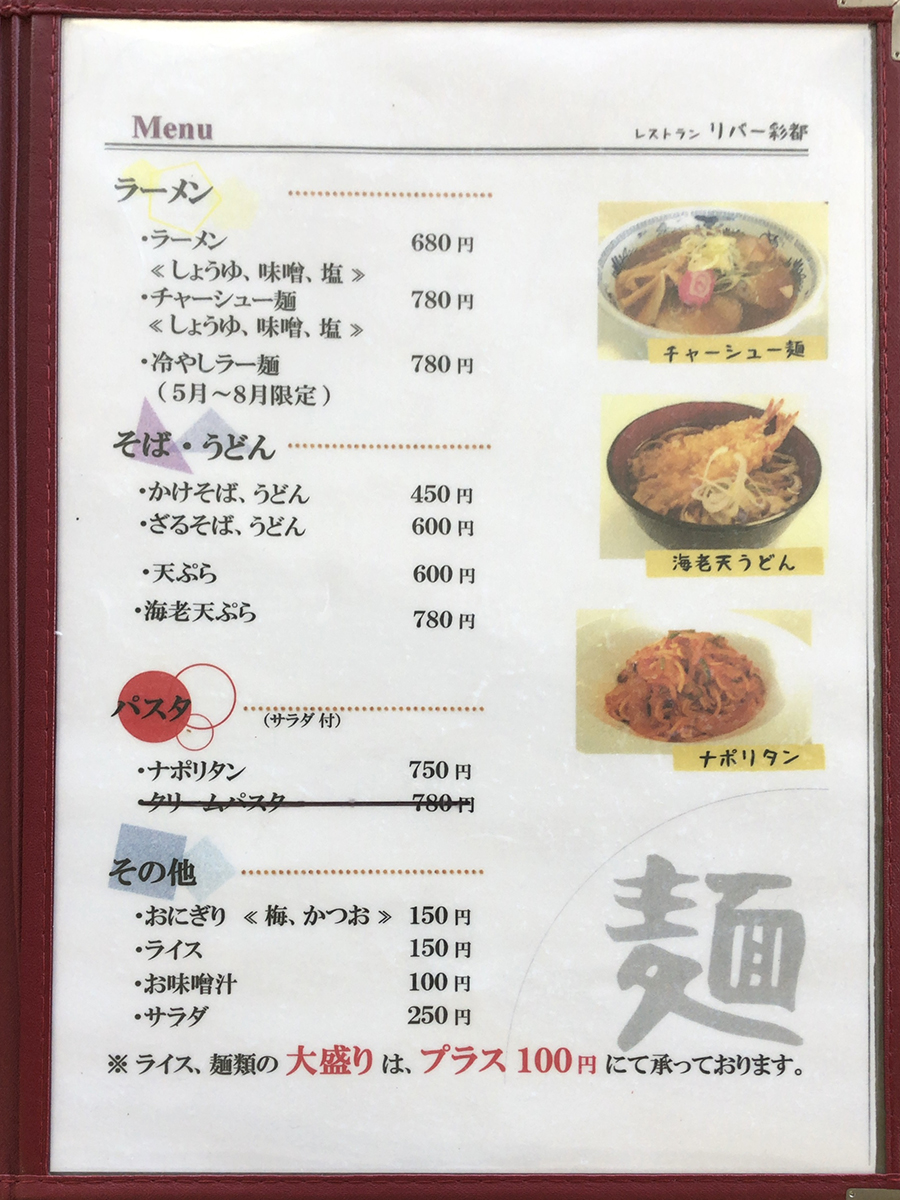 Menu
レストラン リバー彩都
ラーメン
・ラーメン 680円
≪しょうゆ、味噌、塩≫
・チャーシュー麺 780円
≪しょうゆ、味噌、塩≫
・冷やしラー麺 780円
（5月～8月限定）
チャーシュー麺
そば・うどん
・かけそば、うどん 450円
・ざるそば、うどん 600円
・天ぷら 600円
・海老天ぷら 780円
海老天うどん
パスタ
（サラダ付）
・ナポリタン 750円
・クリームパスタ 780円
ナポリタン
その他
・おにぎり ≪梅、かつお≫ 150円
・ライス 150円
・お味噌汁 100円
・サラダ 250円
麺
※ ライス、麺類の 大盛り は、プラス 100円 にて承っております。